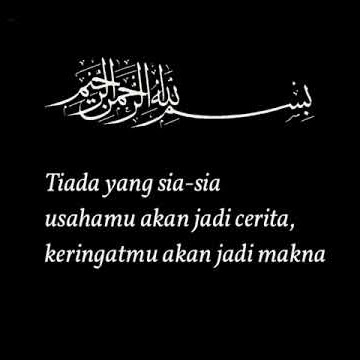 بسم الله الرحمن الرحيم
Tiada yang sia-sia
usahamu akan jadi cerita,
keringatmu akan jadi makna